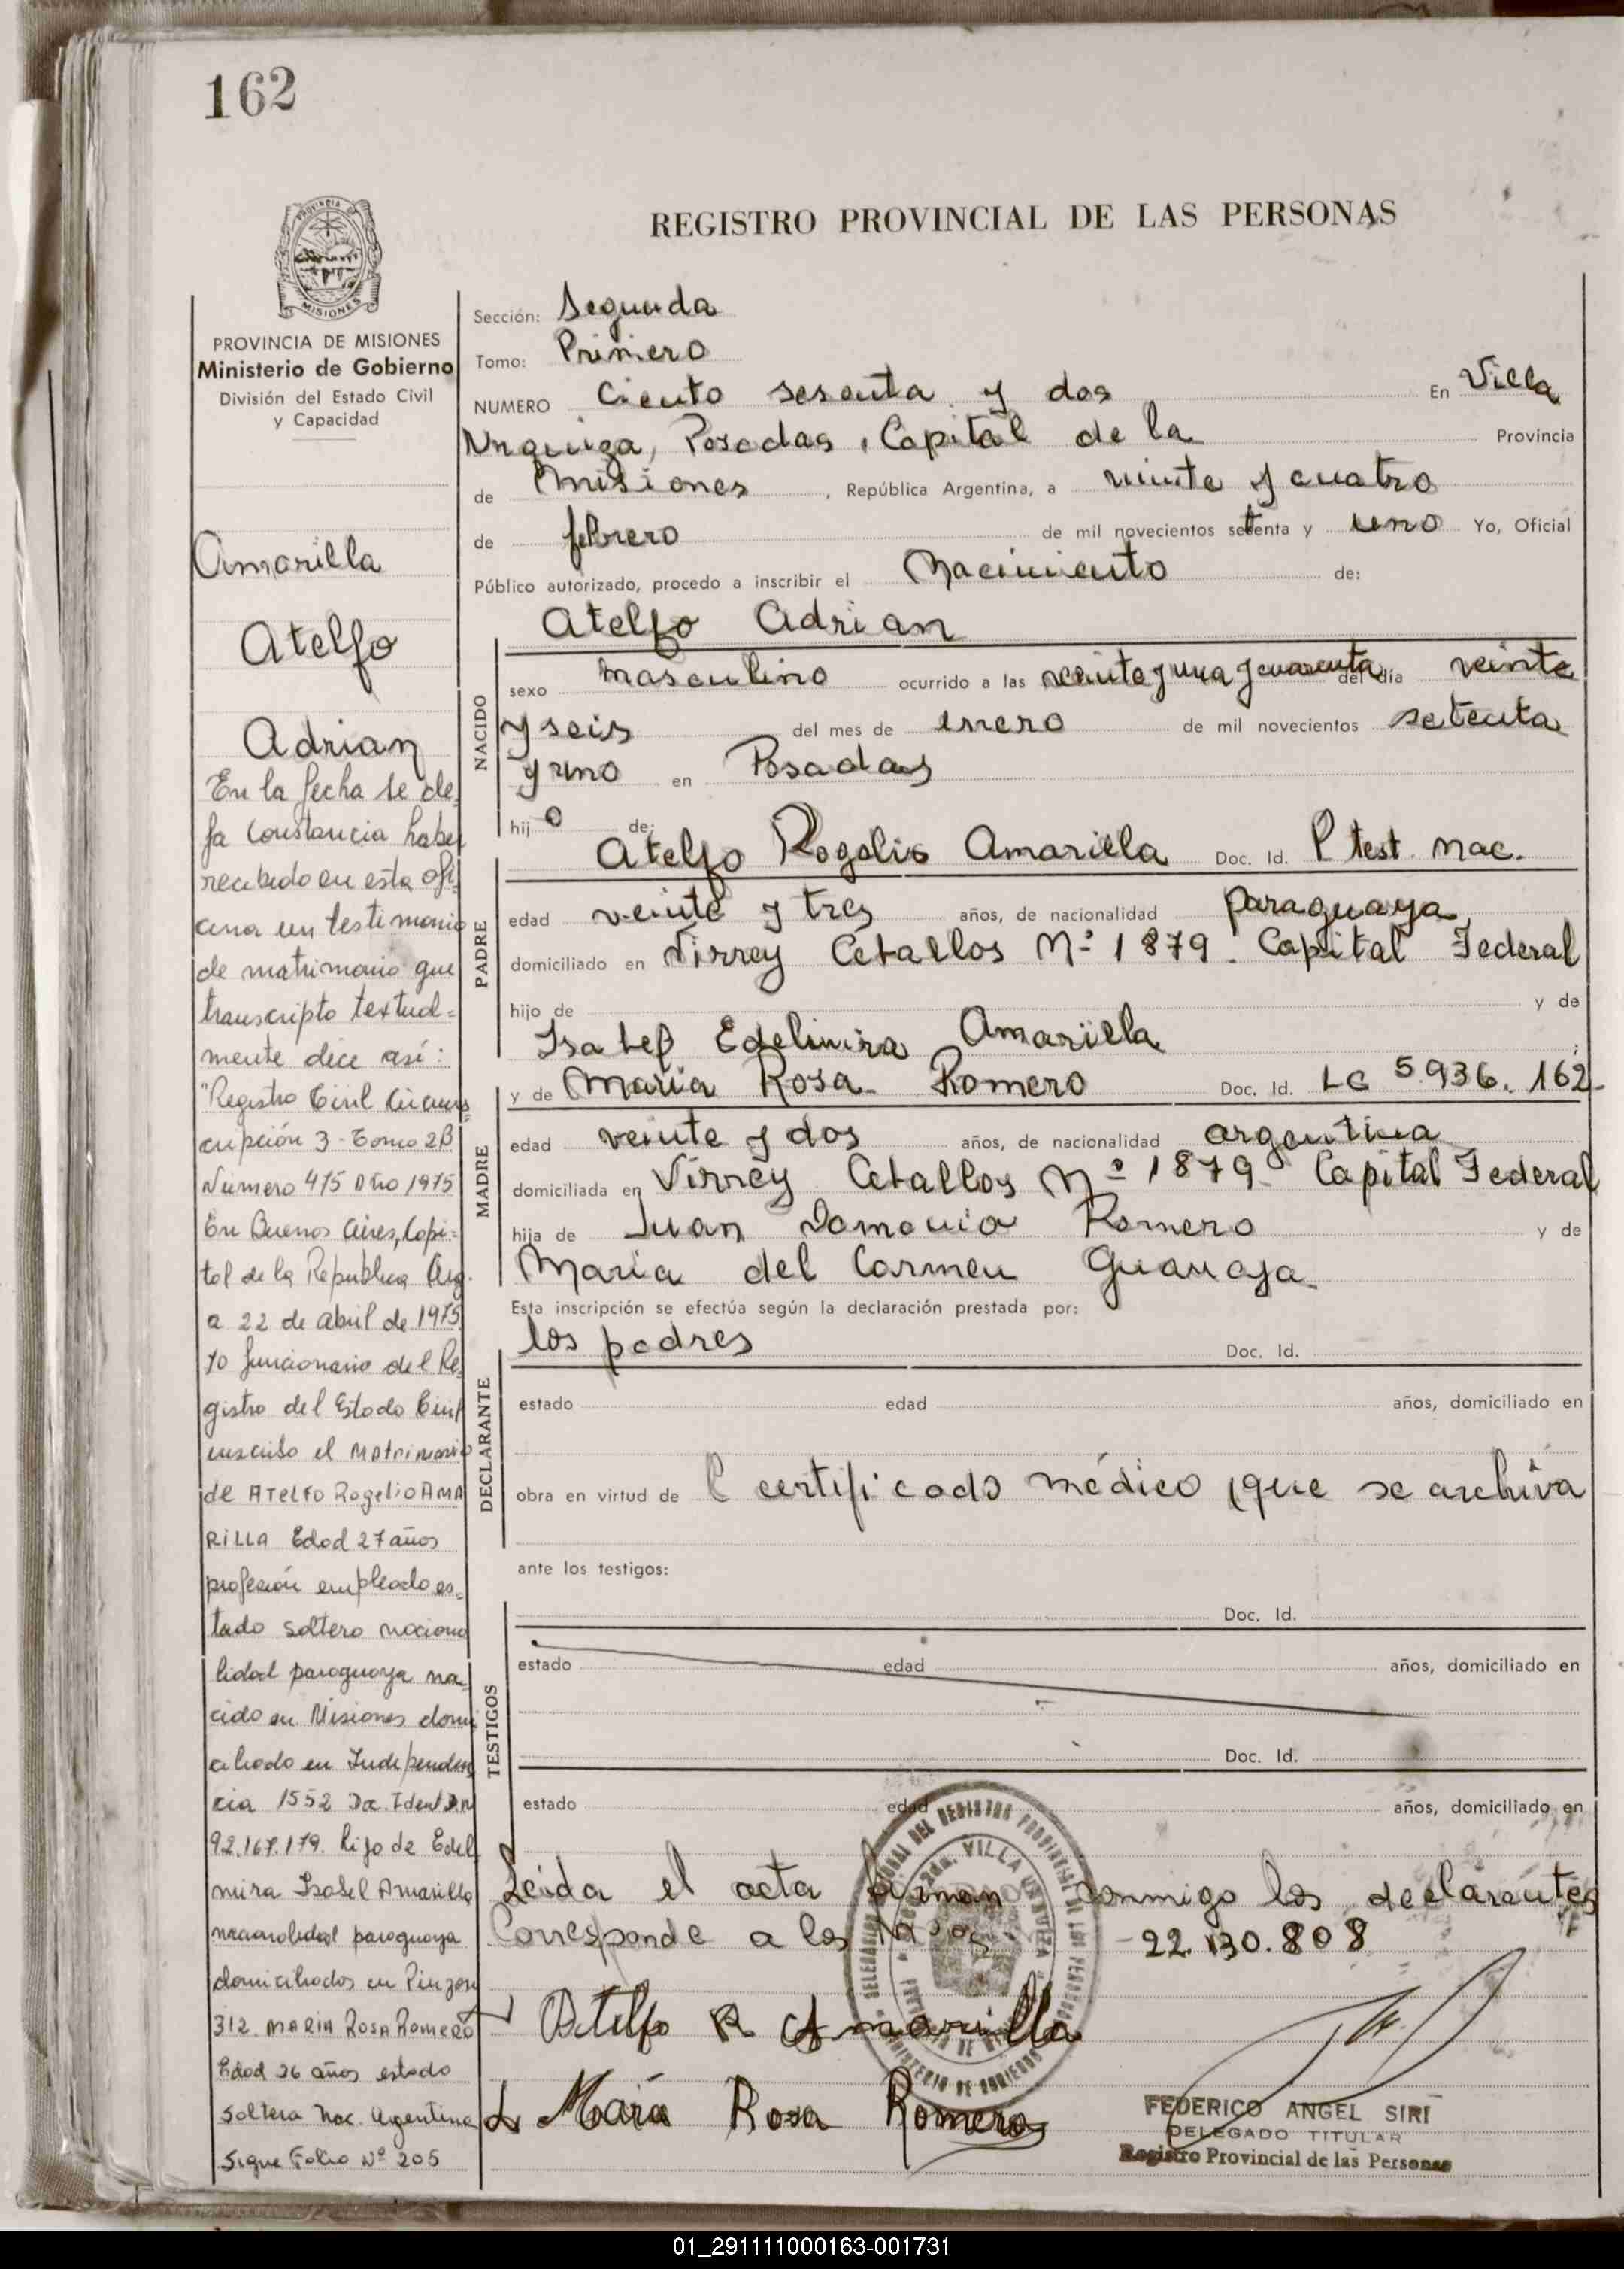 162
PROVINCIA DE
MISIONES
PROVINCIA DE MISIONES
Ministerio de Gobierno
División del Estado Civil
y Capacidad
Amarilla
Atelfo
Adrian
En la fecha se de,
ja constancia haber
recibido en esta ofi-
cina un testimonio
de matrimonio que
transcripto textual=
mente dice así:
"Registro Civil Circuns
cripción 3 - Tomo 2B
Número 475 Año 1975
En Buenos Aires, Capi=
tal de la Republica Arg.
a 22 de abril de 1975
yo funcionario del Re
gistro del Estado Civil
inscribo el Matrimonio
de ATELFO Rogelio AMA
RILLA Edad 27 años
profesión empleado es=
tado soltero naciona
lidad paraguaya na,
cido en Misiones domi
ciliado en Independen
cia 1552 Doc. Ident D.N
92.167.179. hijo de Edel
mira Isabel Amarilla
nacionalidad paraguaya
domiciliados en Pinzon
312. MARIA ROSA Romero
Edad 26 años estado
soltera Nac. Argentina
Sigue Folio Nº 205
REGISTRO PROVINCIAL DE LAS PERSONAS
Sección: Segunda
Tomo: Primero
NUMERO Ciento sesenta y dos En Villa
Urquiza, Posadas, Capital de la Provincia
de Misiones, República Argentina, a veinte y cuatro
de febrero de mil novecientos setenta y uno Yo, Oficial
Público autorizado, procedo a inscribir el Nacimiento de:
Atelfo Adrian
NACIDO
sexo masculino ocurrido a las veinte y una y cuarenta del día veinte
y seis del mes de enero de mil novecientos setenta
y uno en Posadas
hijo de:
Atelfo Rogelio Amarilla Doc. Id. P test. nac.
PADRE
edad veinte y tres años, de nacionalidad paraguaya,
domiciliado en Virrey Ceballos Nº 1879. Capital Federal
hijo de y de
Isabel Edelmira Amarilla
y de Maria Rosa Romero Doc. Id. LC 5.936.162-
MADRE
edad veinte y dos años, de nacionalidad argentina
domiciliada en Virrey Ceballos Nº 1879. Capital Federal
hija de Juan Romero y de
Maria del Carmen
Esta inscripción se efectúa según la declaración prestada por:
los padres Doc. Id.
DECLARANTE
estado edad años, domiciliado en
obra en virtud de l certificado médico que se archiva
ante los testigos:
Doc. Id.
TESTIGOS
estado edad años, domiciliado en
Doc. Id.
estado edad años, domiciliado en
Leida el acta firman conmigo los declarantes
Corresponde a los -22.130.808
Atelfo R Amarilla
Maria Rosa Romero
FEDERICO ANGEL SIRI
DELEGADO TITULAR
Registro Provincial de las Personas
01_291111000163-001731